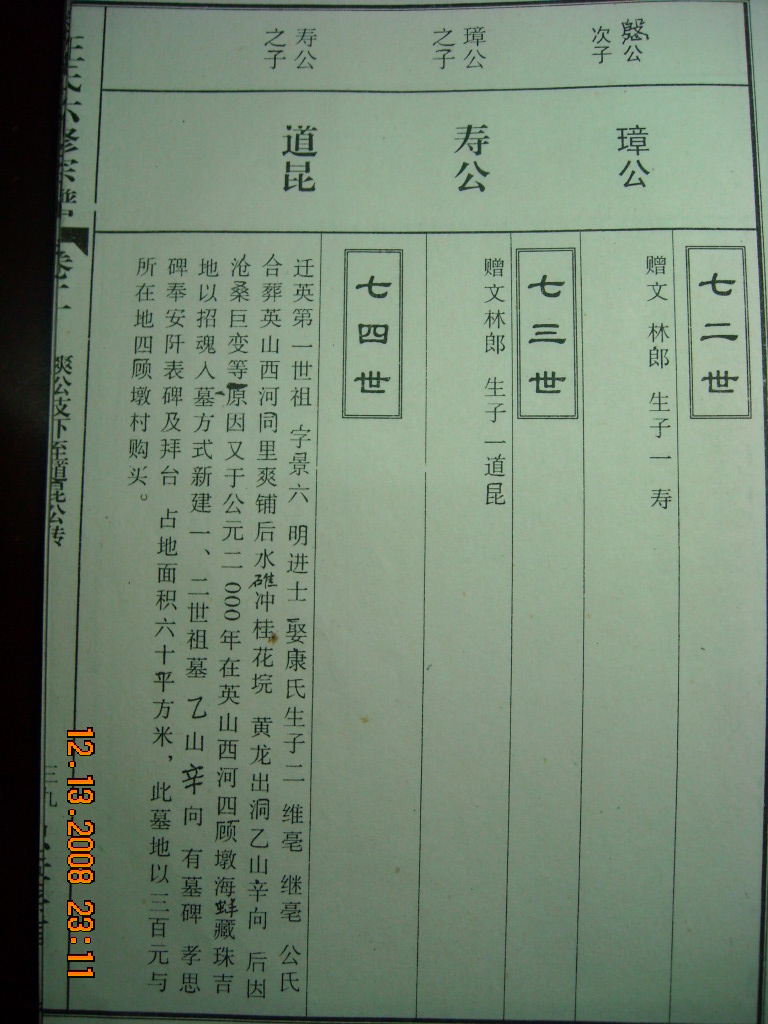 公
次子
璋公
七二世
赠文 林郎 生子一 寿
璋公
之子
寿公
七三世
赠文林郎 生子一道昆
寿公
之子
道昆
七四世
迁英第一世祖 字景六 明进士 娶康氏生子二 维亳 继亳 公氏
合葬英山西河同里爽铺后水礁冲桂花垸 黄龙出洞乙山辛向 后因
沧桑巨变等原因又于公元二000年在英山西河四顾墩海蚌藏珠吉
地以招魂入墓方式新建一、二世祖墓 乙山辛向 有墓碑 孝思
碑奉安阡表碑及拜台 占地面积六十平方米，此墓地以三百元与
所在地四顾墩村购买。
汪氏六修宗谱
卷十一
公支下至道昆公转
三九
12.13.2008 23:11